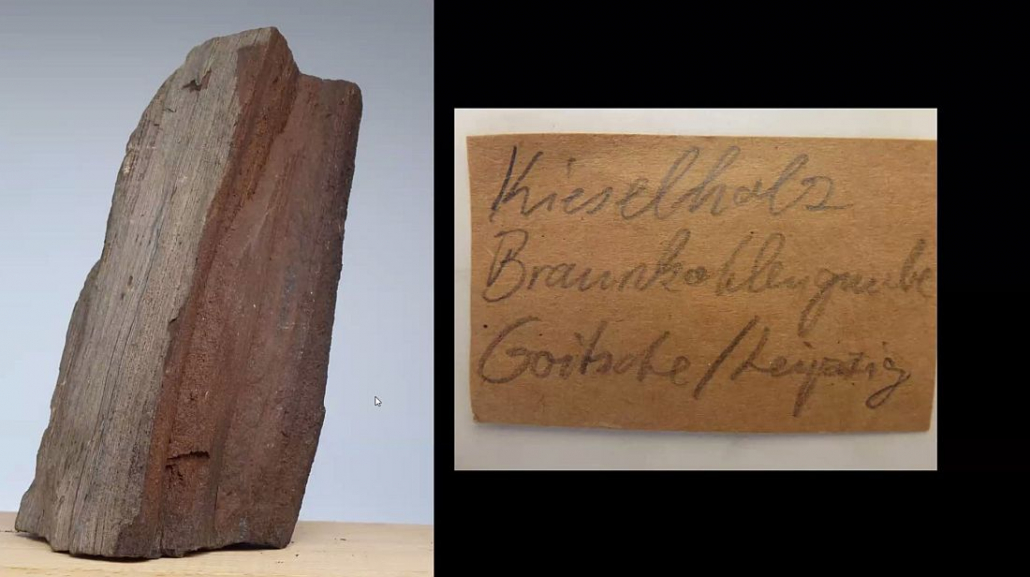 Kieselholz
Braunkohlengrube
Goitsche/Leipzig